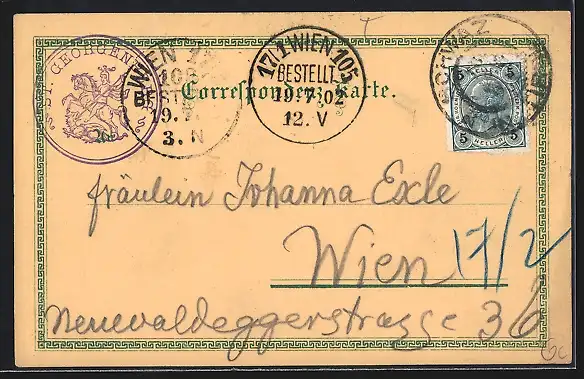 ST. GEORGEN
WIEN
BEST
19.
3. N
17/1 WIEN 105
BESTELLT
19.7.02
12. V
SCHWAZ
5 5
5 HELLER 5
Correspondenz-Karte.
fräulein Johanna Exle
Wien 17/2
Neuwaldeggerstrasse 36